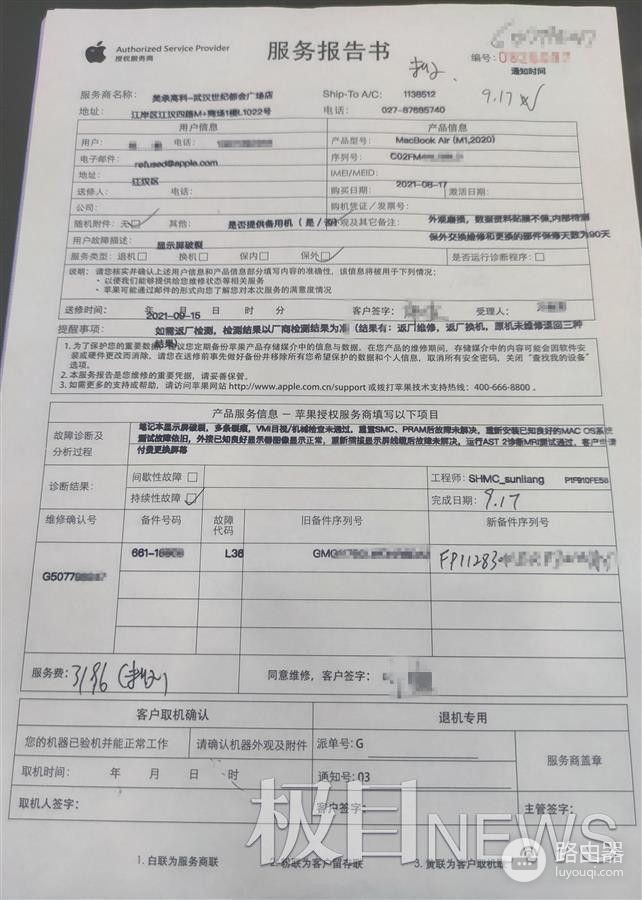 Authorized Service Provider
授权服务商
服务报告书
编号:
通知时间
9.17
服务商名称: 美承高科-武汉世纪都会广场店 Ship-To A/C: 1138512
地址: 江岸区江汉四路M+商场1楼L1022号 电话: 027-87685740
用户信息 产品信息
用户: 电话: 产品型号: MacBook Air (M1,2020)
电子邮件: refused@apple.com 序列号: C02FM
地址: 江汉区 IMEI/MEID:
送修人: 电话: 购买日期: 2021-08-17 激活日期:
公司: 购机凭证/发票号:
随机附件: 无 其他: 是否提供备用机(是/否) 外观及其它备注: 外观磨损,数据资料贴膜不保,内部待测
保外交换维修和更换的部件保修天数为90天
用户故障描述: 显示屏破裂
服务类型: 退机 换机 保内 保外 是否运行诊断程序:
说明: 请您核实并确认上述用户信息和产品信息部分填写内容的准确性,该信息将被用于下列情况:
· 以便我们能够提供给您维修状态等相关服务
· 苹果可能通过邮件的形向您了解您对本次服务的满意度情况
送修时间: 2021-09-15 年 月 日 时 分 客户签字: 受理人:
提醒事项: 如需返厂检测,检测结果以厂商检测结果为准(结果有:返厂维修,返厂换机,原机未维修退回三种结果)
1. 为了保护您的重要数据,建议您定期备份苹果产品存储媒介中的信息与数据。在您产品的维修期间,存储媒介中的内容可能会因软件安装或硬件更改而消除,请您在送修前事先做好备份并移除所有您希望保护的数据和个人信息,取消所有安全密码,关闭“查找我的设备”选项。
2. 本服务报告是您维修的重要凭据,请妥善保管。
3. 如需更多的支持或帮助,请访问苹果网站 http://www.apple.com.cn/support 或拨打苹果技术支持热线:400-666-8800 。
产品服务信息 — 苹果授权服务商填写以下项目
故障诊断及分析过程 笔记本显示屏破裂,多条裂痕,VMI目视/机械检查未通过,重置SMC、PRAM后故障未解决,重新安装已知良好的MAC OS系统
测试故障依旧,外接已知良好显示器图像显示正常,重新插拔显示屏线缆后故障未解决,运行AST 2诊断MRI测试通过,客户申请
付费更换屏幕
诊断结果: 间歇性故障 工程师: SHMC_sunliang P1F910FE56
持续性故障 完成日期: 9.17
维修确认号 备件号码 故障代码 旧备件序列号 新备件序列号
G507 661- L36 GMG FP11283
服务费: 3196 同意维修,客户签字:
客户取机确认 退机专用
您的机器已验机并能正常工作 请确认机器外观及附件 派单号: G 服务商盖章
取机时间: 年 月 日 时 通知号: 03
取机人签字: 客户签字: 主管签字:
1. 白联为服务商联 2. 粉联为客户留存联 3. 黄联为客户取机联
极目NEWS
路由器
luyouqi.com